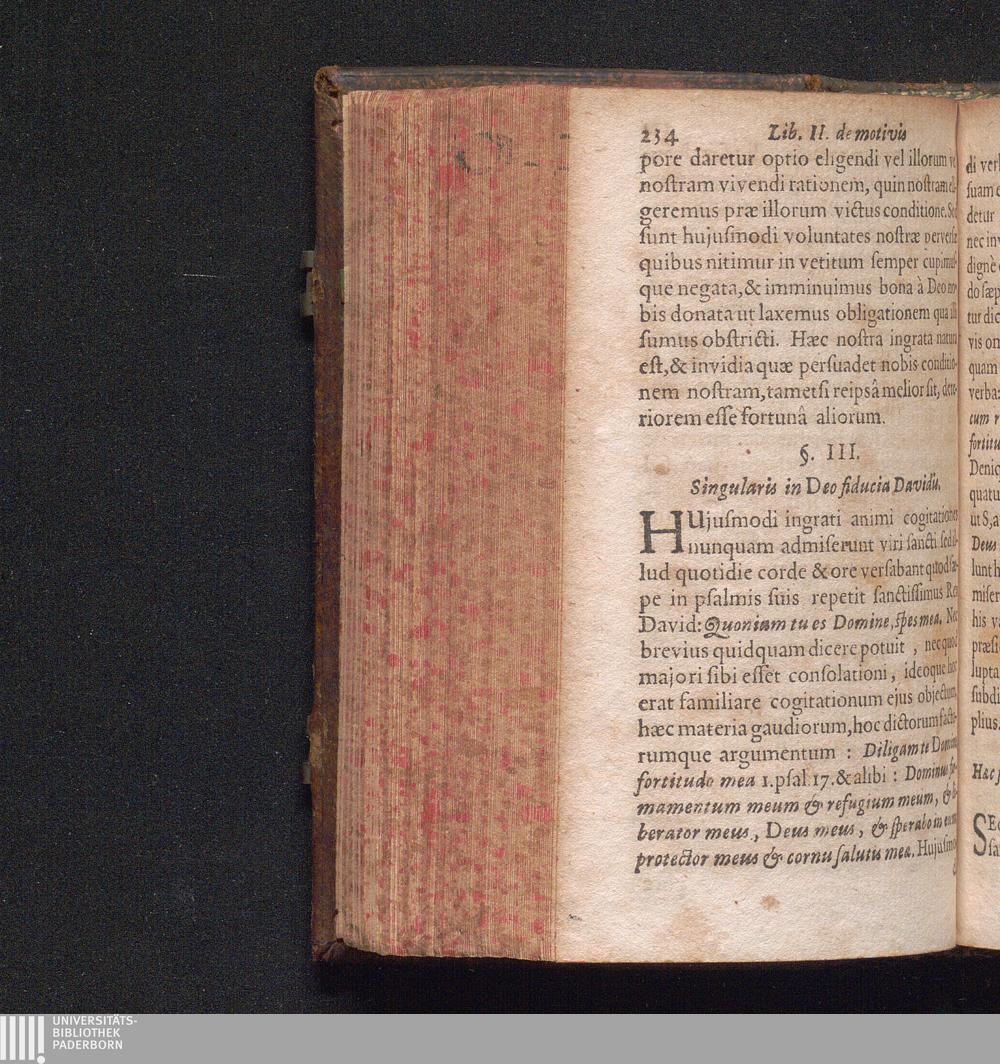 234 Lib. II. de motivis
pore daretur optio eligendi vel illorum
noſtram vivendi rationem, quin noſtram
geremus præ illorum victus conditione. Sed
ſunt hujuſmodi voluntates noſtræ perverſæ
quibus nitimur in vetitum ſemper cupimuſ-
que negata, & imminuimus bona à Deo no-
bis donata ut laxemus obligationem qua illi
ſumus obſtricti. Hæc noſtra ingrata natura
eſt, & invidia quæ perſuadet nobis conditio-
nem noſtram, tametſi reipsâ melior ſit, dete-
riorem eſſe fortunâ aliorum.
§. III.
Singularis in Deo fiducia Davidis.
HUjuſmodi ingrati animi cogitationes
nunquam admiſerunt viri ſancti ſed il-
lud quotidie corde & ore verſabant quod ſæ-
pe in pſalmis ſuis repetit ſanctiſſimus Rex
David: Quoniam tu es Domine, ſpes mea. Nec
brevius quidquam dicere potuit, nec quod
majori ſibi eſſet conſolationi, ideoque hoc
erat familiare cogitationum ejus objectum,
hæc materia gaudiorum, hoc dictorum facto-
rumque argumentum : Diligam te Domine
fortitudo mea 1. pſal. 17. & alibi : Dominus fir-
mamentum meum & refugium meum, & li-
berator meus, Deus meus, & ſperabo in eum
protector meus & cornu ſalutis meæ. Hujuſmo-
di
ſuam
detur
nec
dignè
do ſæp
tur dic
vis
quam
verba:
cum
fortitu
Deniq
quatu
ut S, a
Deus
lunt h
miſer
his
præſt
lupta
ſubdi
plius.
Hæc
SE
ſa
UNIVERSITÄTS-
BIBLIOTHEK
PADERBORN